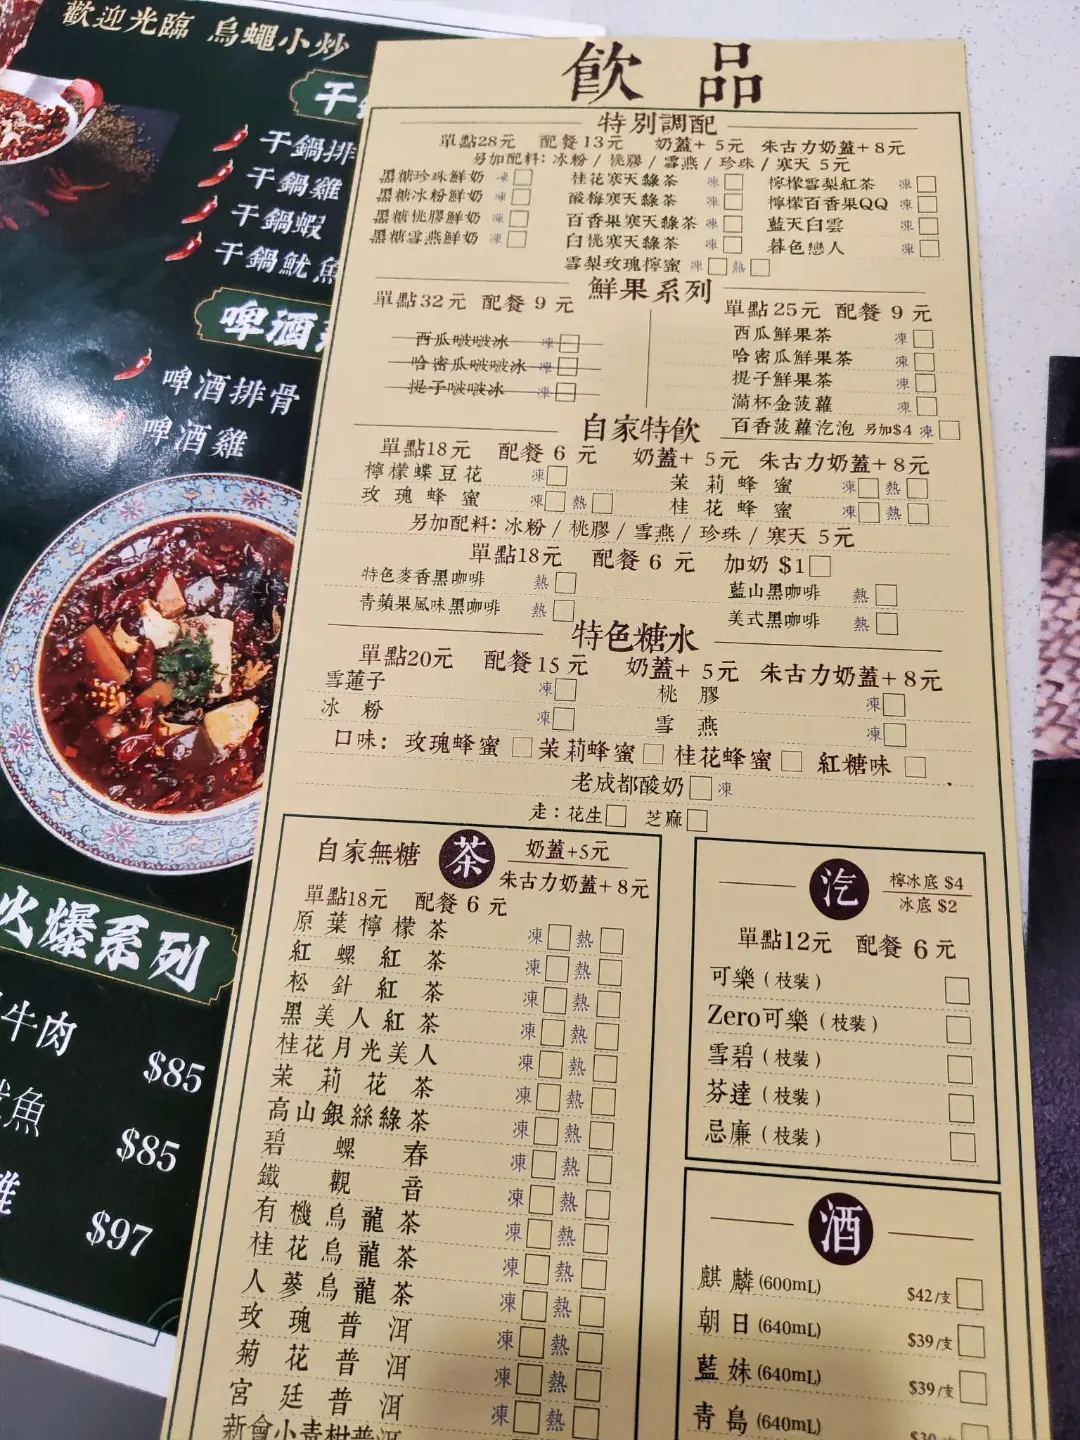 歡迎光臨 烏蠅小炒
干鍋排
干鍋雞
干鍋蝦
干鍋魷魚
啤酒
啤酒排骨
啤酒雞
火爆系列
牛肉
$85
魚
$85
$97
飲品
特別調配
單點28元 配餐13元 奶蓋+5元 朱古力奶蓋+8元
另加配料: 冰粉 / 桃膠 / 雪燕 / 珍珠 / 寒天 5元
黑糖珍珠鮮奶 凍 桂花寒天綠茶 凍 檸檬雪梨紅茶 凍
黑糖冰粉鮮奶 凍 酸梅寒天綠茶 凍 檸檬百香果QQ 凍
黑糖桃膠鮮奶 凍 百香果寒天綠茶 凍 藍天白雲 凍
黑糖雪燕鮮奶 凍 白桃寒天綠茶 凍 暮色戀人 凍
雪梨玫瑰檸蜜 凍 熱
鮮果系列
單點32元 配餐 9 元 單點25元 配餐 9 元
西瓜啵啵冰 凍 西瓜鮮果茶 凍
哈密瓜啵啵冰 凍 哈密瓜鮮果茶 凍
提子啵啵冰 凍 提子鮮果茶 凍
滿杯金菠蘿 凍
百香菠蘿汔泡 另加$4 凍
自家特飲
單點18元 配餐 6 元 奶蓋+5元 朱古力奶蓋+8元
檸檬蝶豆花 凍 茉莉蜂蜜 凍 熱
玫瑰蜂蜜 凍 熱 桂花蜂蜜 凍 熱
另加配料: 冰粉 / 桃膠 / 雪燕 / 珍珠 / 寒天 5元
單點18元 配餐 6 元 加奶 $1
特色麥香黑咖啡 熱 藍山黑咖啡 熱
青蘋果風味黑咖啡 熱 美式黑咖啡 熱
特色糖水
單點20元 配餐15元 奶蓋+5元 朱古力奶蓋+8元
雪蓮子 凍 桃膠 凍
冰粉 凍 雪燕 凍
口味: 玫瑰蜂蜜 茉莉蜂蜜 桂花蜂蜜 紅糖味
老成都酸奶 凍
走: 花生 芝麻
自家無糖 茶 奶蓋+5元
朱古力奶蓋+8元
單點18元 配餐 6 元
原葉檸檬茶 凍 熱
紅螺紅茶 凍 熱
松針紅茶 凍 熱
黑美人紅茶 凍 熱
桂花月光美人 凍 熱
茉莉花茶 凍 熱
高山銀絲綠茶 凍 熱
碧螺春 凍 熱
鐵觀音 凍 熱
有機烏龍茶 凍 熱
桂花烏龍茶 凍 熱
人蔘烏龍茶 凍 熱
玫瑰普洱 凍 熱
菊花普洱 凍 熱
宮廷普洱 凍 熱
新會小青柑普洱
汔 檸冰底 $4
冰底 $2
單點12元 配餐 6 元
可樂 (枝裝)
Zero可樂 (枝裝)
雪碧 (枝裝)
芬達 (枝裝)
忌廉 (枝裝)
酒
麒麟 (600mL) $42/支
朝日 (640mL) $39/支
藍妹 (640mL) $39/支
青島 (640mL)